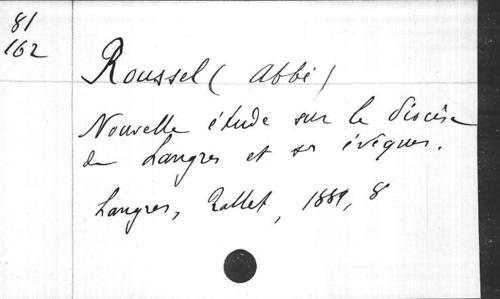 81
162
Roussel (Abbé)
Nouvelle étude sur le diocèse
de Langres et ses évêques.
Langres, Rallet, 1889, 8